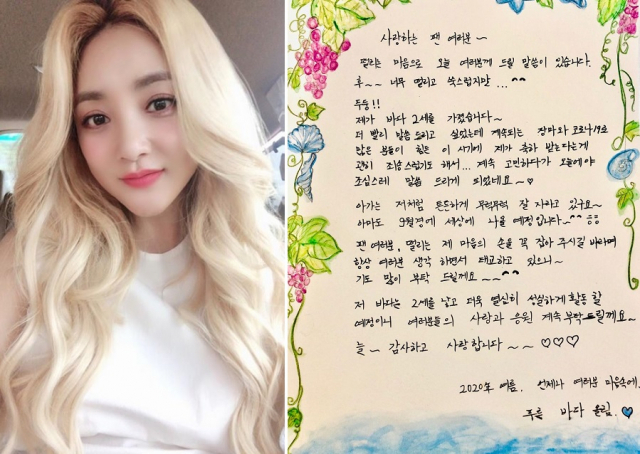 사랑하는 팬 여러분~
떨리는 마음으로 오늘 여러분께 드릴 말씀이 있습니다.
후~~ 너무 떨리고 쑥스럽지만...^^
두둥!!
제가 바다 2세를 가졌습니다~
더 빨리 말씀 드리고 싶었는데 계속되는 장마와 코로나19로
많은 분들이 힘든 이 시기에 제가 축하 받는다는게
괜히 죄송스럽기도 해서... 계속 고민하다가 오늘에야
조심스레 말씀 드리게 되었네요~♡
아가는 저처럼 튼튼하게 무럭무럭 잘 자라고 있구요~
아마도 9월경에 세상에 나올 예정입니다~^^
팬 여러분, 떨리는 제 마음의 손을 꼭 잡아 주시길 바라며
항상 여러분 생각 하면서 태교하고 있으니~
기도 많이 부탁 드릴께요~~^^
저 바다는 2세를 낳고 더욱 열심히 성실하게 활동 할
예정이니 여러분들의 사랑과 응원 계속 부탁드릴께요~
늘~ 감사하고 사랑합니다~~♡♡♡
2020年 여름. 언제나 여러분 마음속에.
푸를 바다 올림.